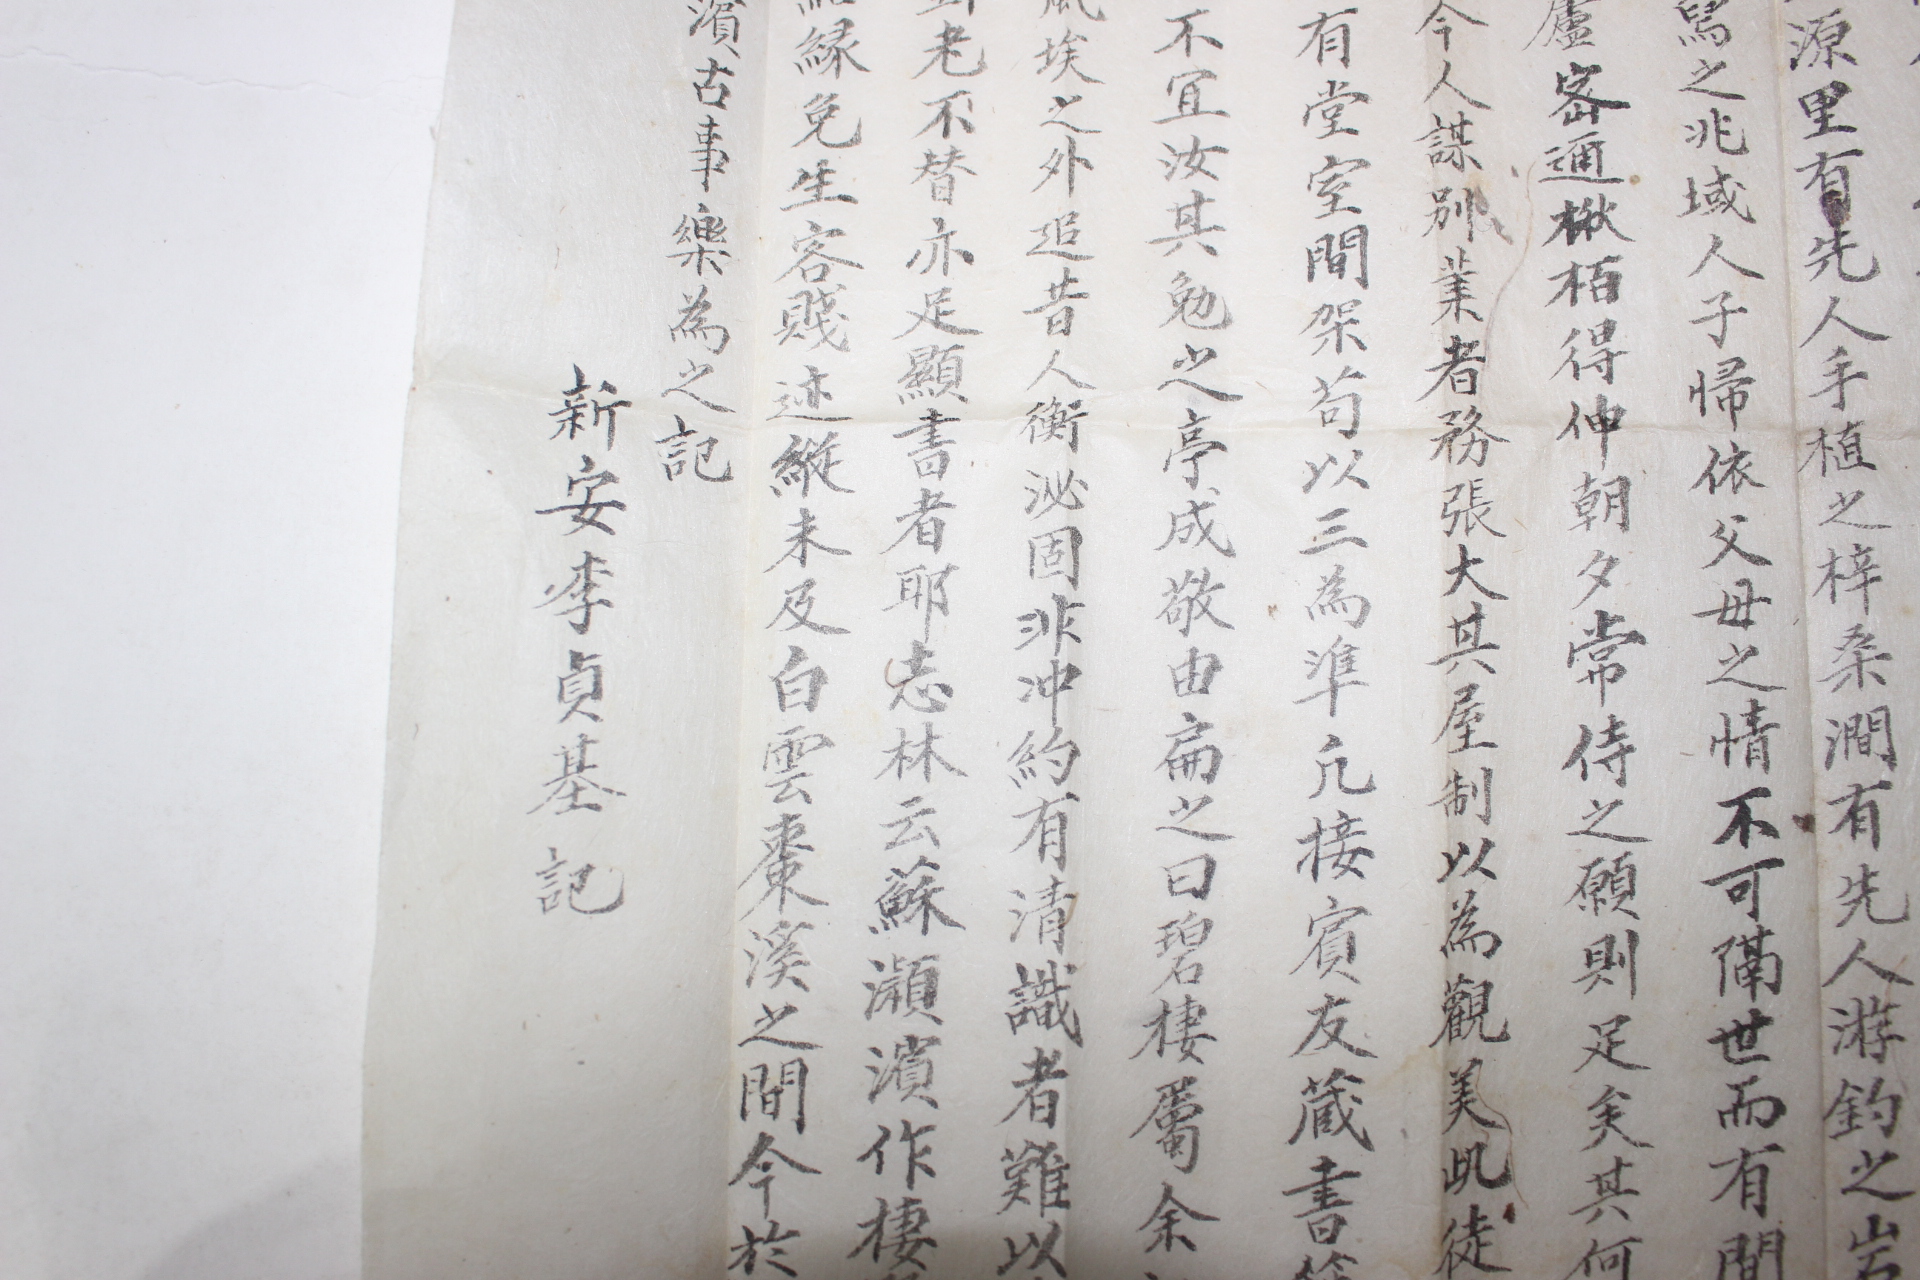 源里有先人手植之梓桑澗有先人游釣之岩
之兆域人子帰依父母之情不可隔世而有間
廬密邇楸栢得伸朝夕常侍之願則足矣其何
今人謀別業者務張大其屋制以為觀美此徒
有堂室間架苟以三為準凢接賓友蔵書
不宜汝其勉之亭成敬由扁之曰碧棲屬余
風埃之外追昔人衡泌固非冲約有清識者難以
老不替亦足顯書者耶志林云蘇瀕濱作棲
緣免生客賤迹縱未及白雲棗溪之間今於
濱古事樂為之記
新安李貞基記